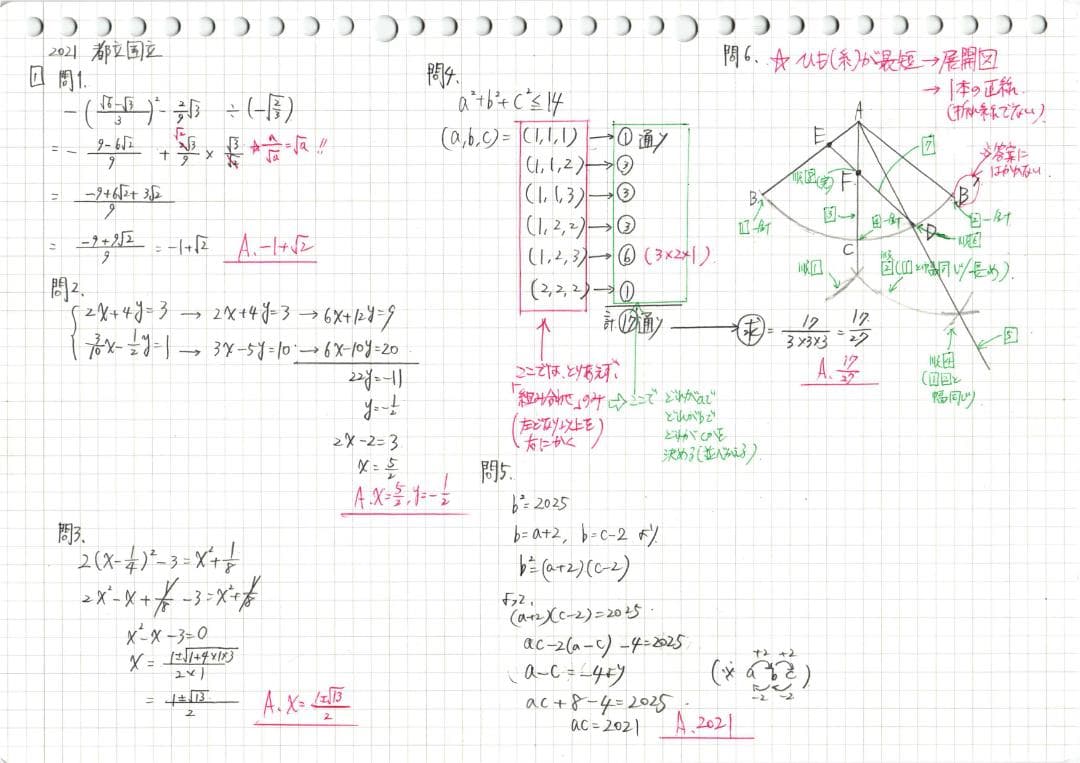 2021 都立国立
1 問1.
-((√6-√3)/3)² - 2/9√3 ÷ (-√(2/3))
= - (9-6√2)/9 + √2 2√3/9 × √3/√2 ☆ a/√a = √a !!
= (-9+6√2+3√2)/9
= (-9+9√2)/9 = -1+√2 A. -1+√2
問2.
2x+4y=3 → 2x+4y=3 → 6x+12y=9
3/10x-1/2y=1 → 3x-5y=10 → 6x-10y=20
22y=-11
y=-1/2
2x-2=3
x=5/2
A. x=5/2, y=-1/2
問3.
2(x-1/4)²-3=x²+1/8
2x²-x+1/8-3=x²+1/8
x²-x-3=0
x=(1±√(1+4×1×3))/(2×1)
=(1±√13)/2 A. x=(1±√13)/2
問4.
a²+b²+c²≦14
(a,b,c)= (1,1,1) → ① 通り
(1,1,2) → ③
(1,1,3) → ③
(1,2,2) → ③
(1,2,3) → ⑥ (3×2×1)
(2,2,2) → ①
計⑰通り → 求=17/(3×3×3)=17/27
A. 17/27
ここでは、とりあえず、
「組み合わせ」のみ ⇨ ここで
(左となり以上を
右にかく)
どれがaで
どれがbで
どれがcかを
決める(並べかえる)
問5.
b²=2025
b=a+2, b=c-2 より
b²=(a+2)(c-2)
よって、
(a+2)(c-2)=2025
ac-2(a-c)-4=2025
a-c=-4より
ac+8-4=2025
ac=2021 A. 2021
(※ a b c)
+2 +2
-2 -2
問6.
☆ ひも(糸)が最短→展開図
→ 1本の直線
(折れ線でない)
A
E
7
※答案に
はかかない
F
B
B'
3
D
C
順1
順4
(1回と
幅同じ)
5